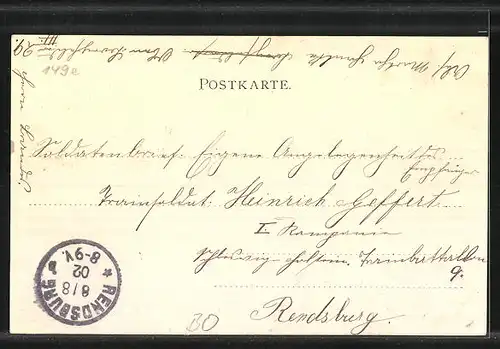 149e
POSTKARTE.
Soldatenbrief. Eigene Angelegenheit des
Empfängers
Trainsoldat. Heinrich Geffert.
I Kompanie
Schleswig-Holstein. Trainbattallon
9.
Rendsburg.
BO
* RENDSBURG *
8/8
02
8-9V.
Abs. Martha